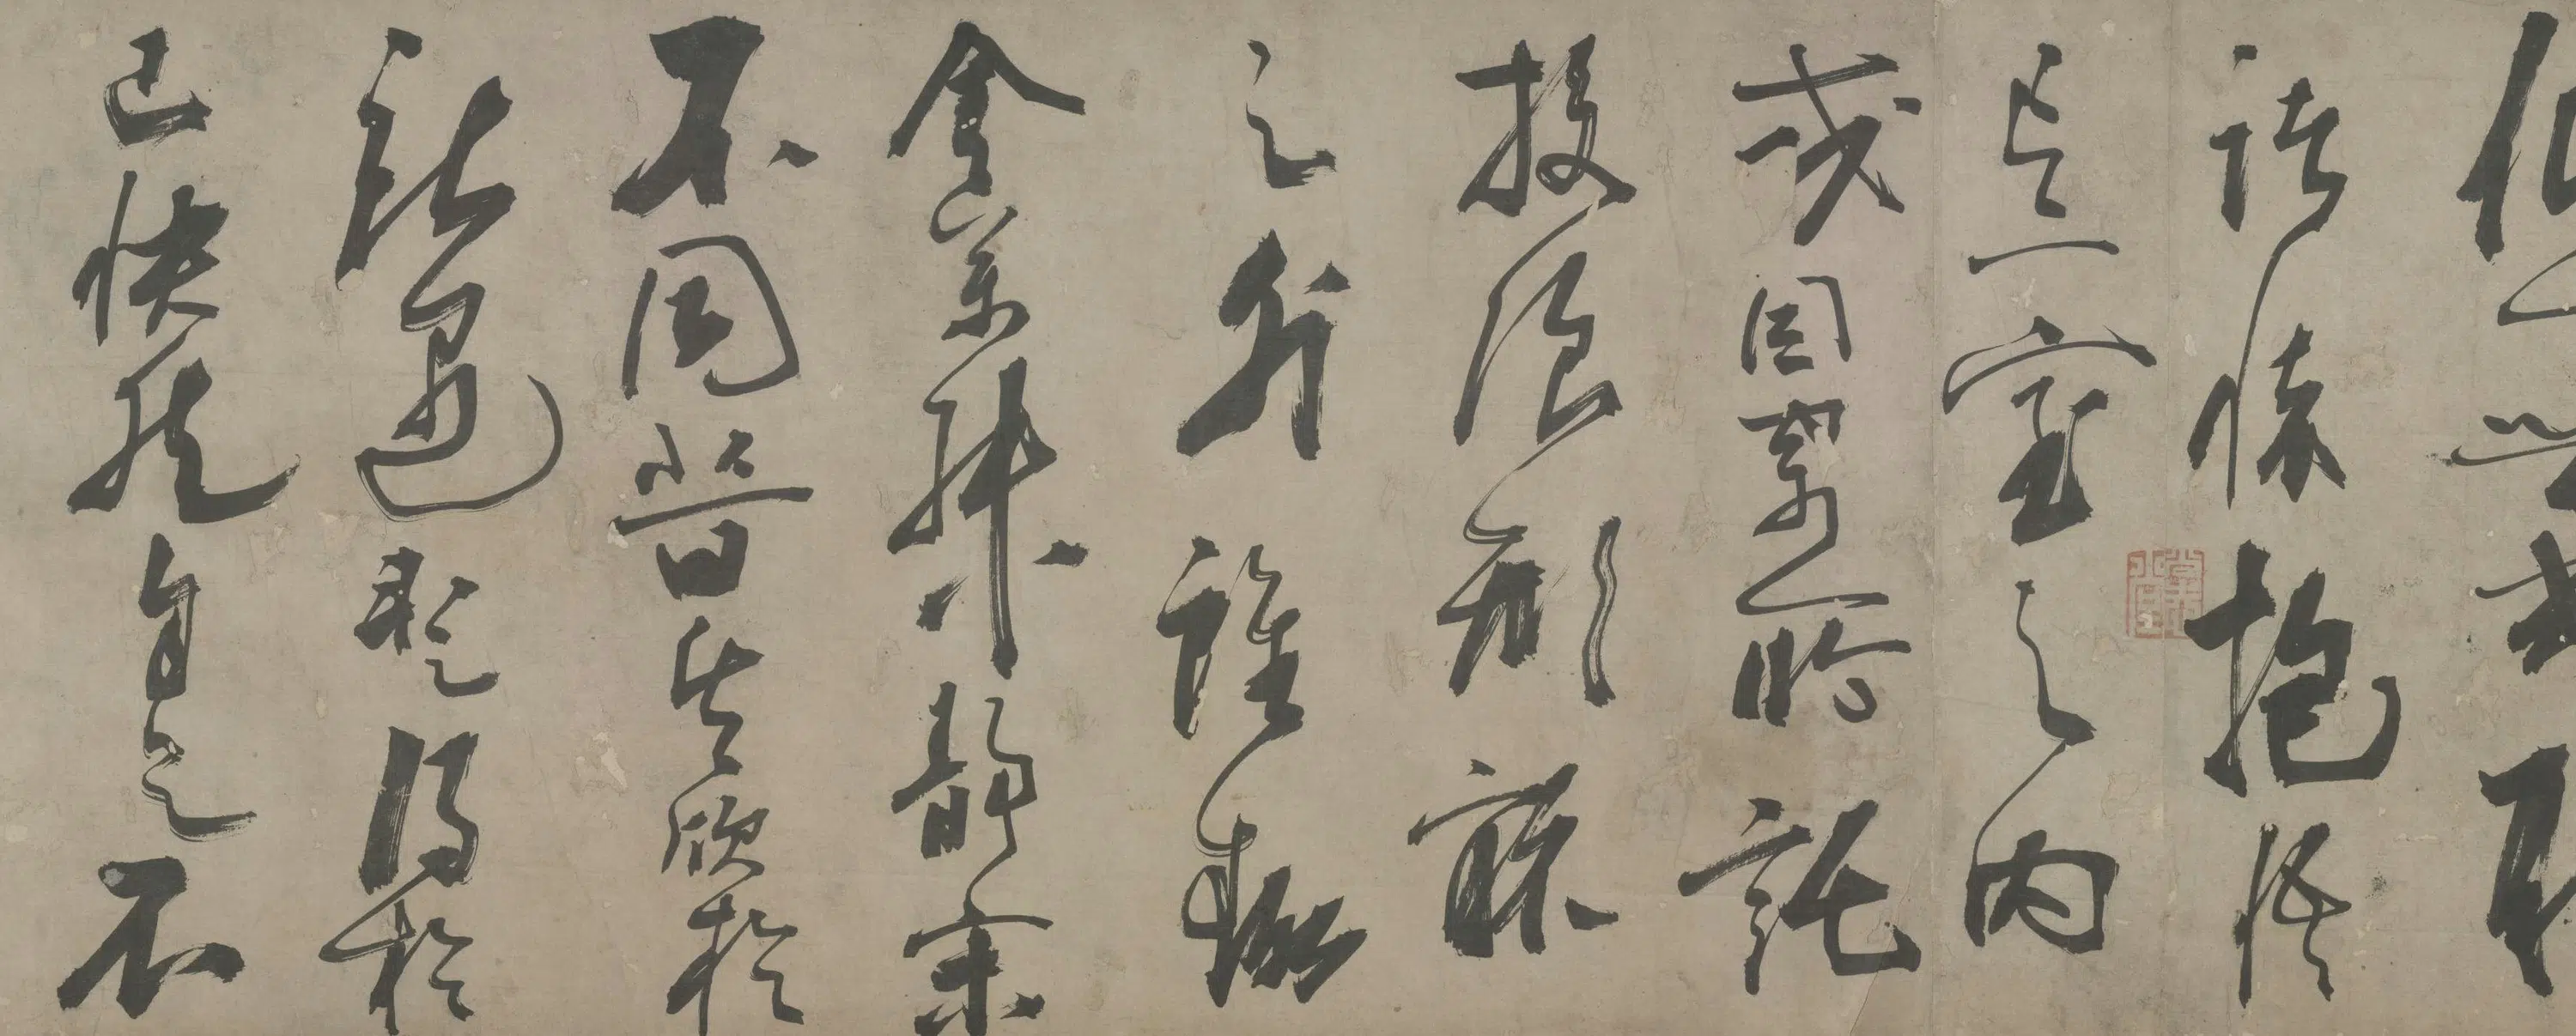 仰一世或取
諸懷抱悟
言一室之内
或因寄所託
放浪形骸
之外雖趣
舍萬殊靜躁
不同當其欣於
所遇暫得於
己快然自足不